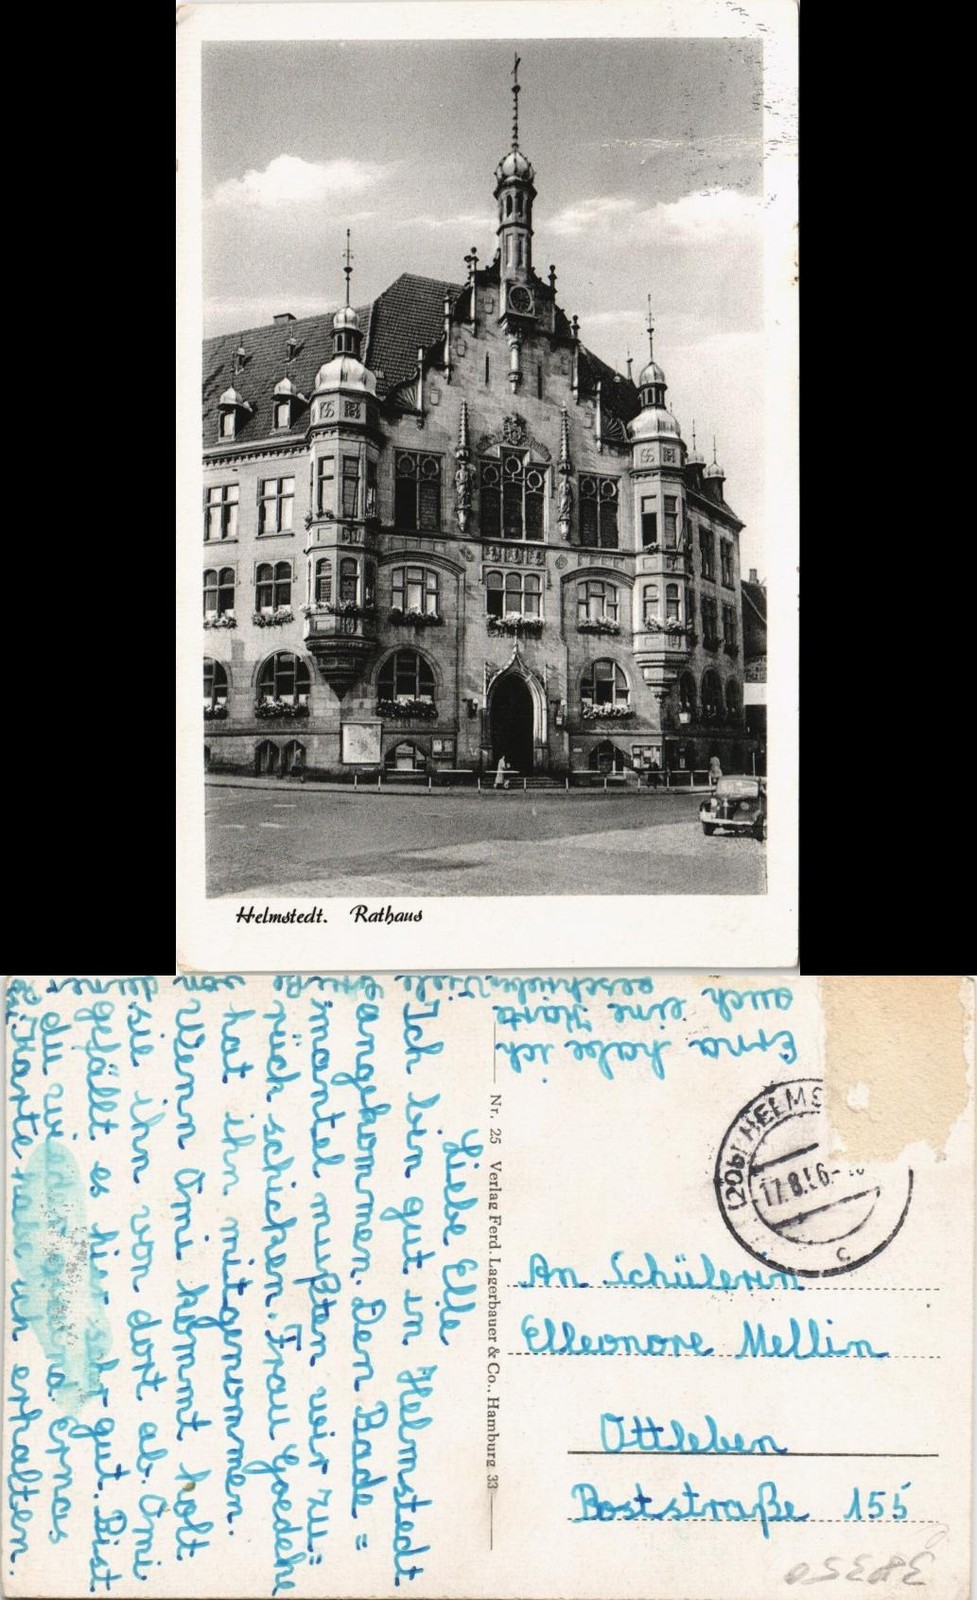 Helmstedt. Rathaus
Liebe Elle
Ich bin gut in Helmstedt
angekommen. Den Bade =
mantel mußten wir zu=
rück schicken. Frau Goedeke
hat ihn mitgenommen.
Wenn Omi kömmt holt
sie ihn von dort ab. Omi
gefällt es hier sehr gut. Bist
du Ernas
Karte habe ich erhalten.
Erna habe ich
auch eine Karte
geschrieben. Viele Grüße
von deiner
Nr. 25 Verlag Ferd. Lagerbauer & Co., Hamburg 33
(20b) HELMS
17.8.56-
c
An Schülerin
Elleonore Mellin
Ottleben
Poststraße 155